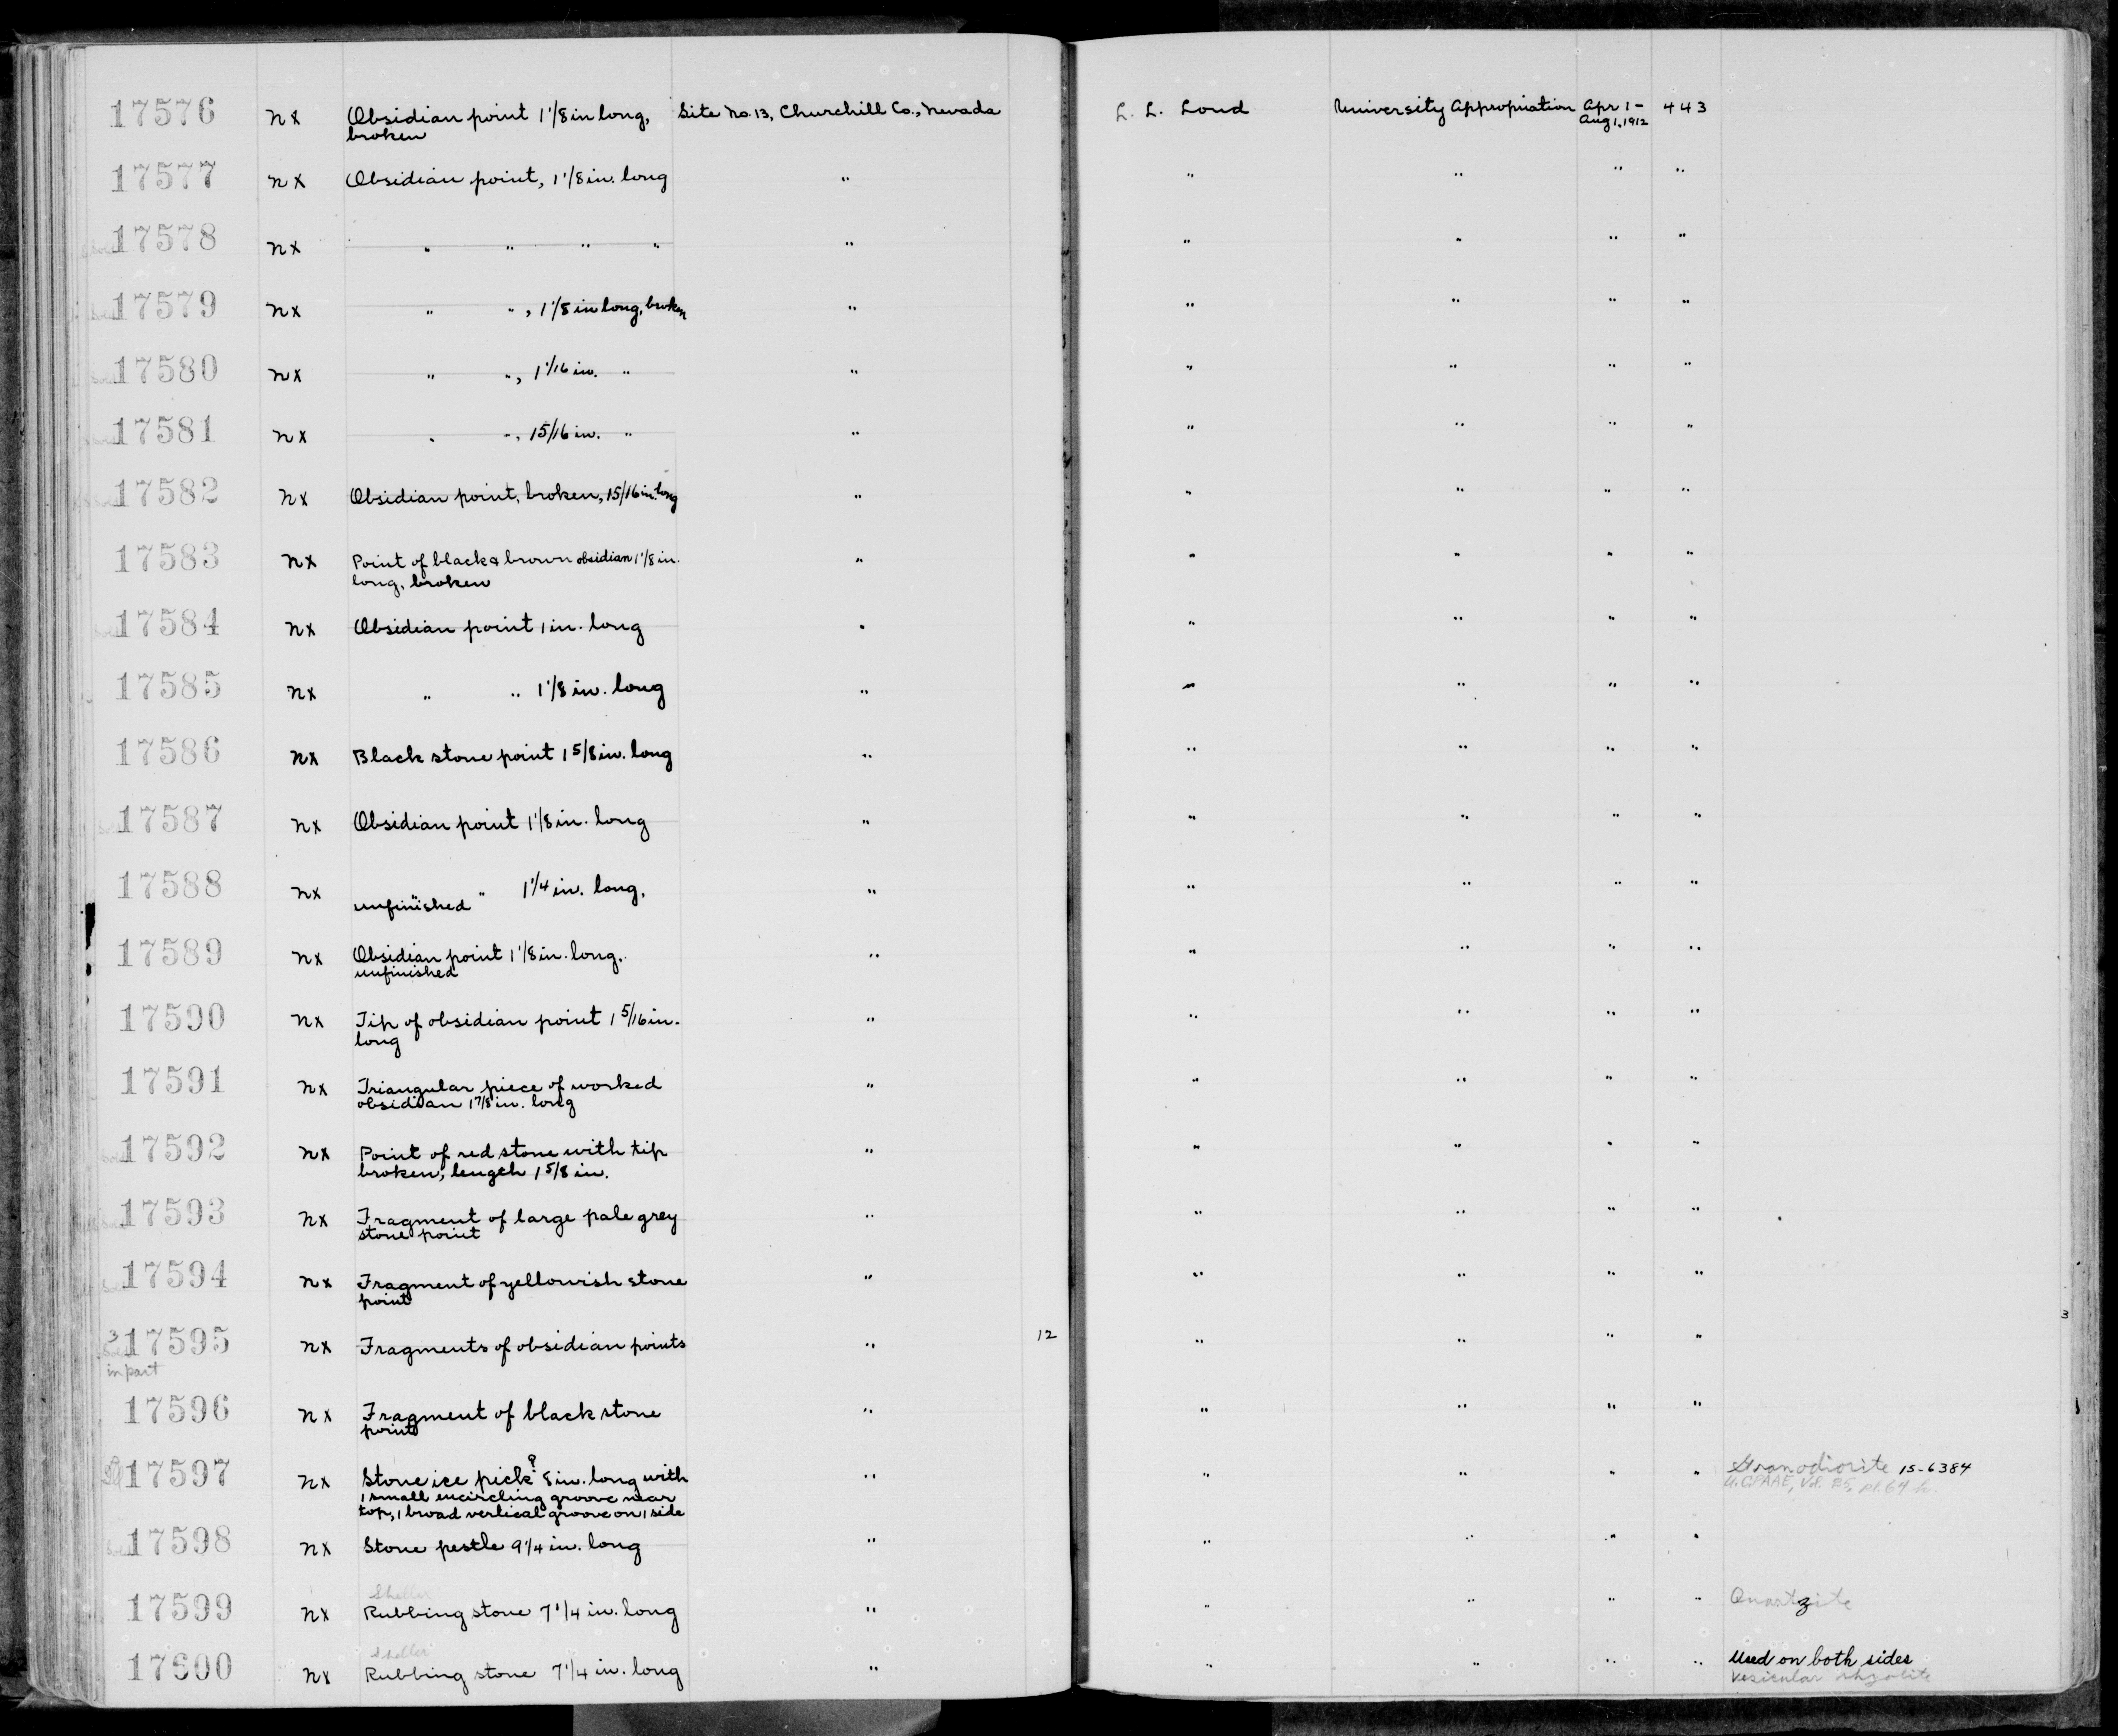 17576 nx Obsidian point 1 1/8 in long, Site No. 13, Churchill Co., Nevada L. L. Loud University Appropriation Apr 1 - 443
broken Aug 1, 1912
17577 nx Obsidian point, 1 1/8 in. long " " " " "
17578 nx " " " " " " " " "
17579 nx " ", 1 1/8 in long, broken " " " " "
17580 nx " ", 1 1/16 in. " " " " " "
17581 nx " ", 15/16 in. " " " " " "
17582 nx Obsidian point, broken, 15/16 in. long " " " " "
17583 nx Point of black & brown obsidian 1 1/8 in. " " " " "
long, broken
17584 nx Obsidian point 1 in. long " " " " "
17585 nx " " 1 1/8 in. long " " " " "
17586 nx Black stone point 1 5/8 in. long " " " " "
17587 nx Obsidian point 1 1/8 in. long " " " " "
17588 nx " " 1 1/4 in. long, " " " " "
unfinished
17589 nx Obsidian point 1 1/8 in. long, " " " " "
unfinished
17590 nx Tip of obsidian point 1 5/16 in. " " " " "
long
17591 nx Triangular piece of worked " " " " "
obsidian 1 7/8 in. long
17592 nx Point of red stone with tip " " " " "
broken, length 1 5/8 in.
17593 nx Fragment of large pale grey " " " " "
stone point
17594 nx Fragment of yellowish stone " " " " "
point
3
3 17595 nx Fragments of obsidian points " 12 " " " "
in part
17596 nx Fragment of black stone " " " " "
point
17597 nx Stone ice pick? 8 in. long with " " " " " Granodiorite 15-6384
1 small encircling groove near UCPAAE, Vol. 25, pl. 64 h.
top, 1 broad vertical groove on 1 side
17598 nx Stone pestle 9 1/4 in. long " " " " "
Sheller
17599 nx Rubbing stone 7 1/4 in. long " " " " " Quartzite
Sheller
17600 nx Rubbing stone 7 1/4 in. long " " " " " Used on both sides
Vesicular rhyolite